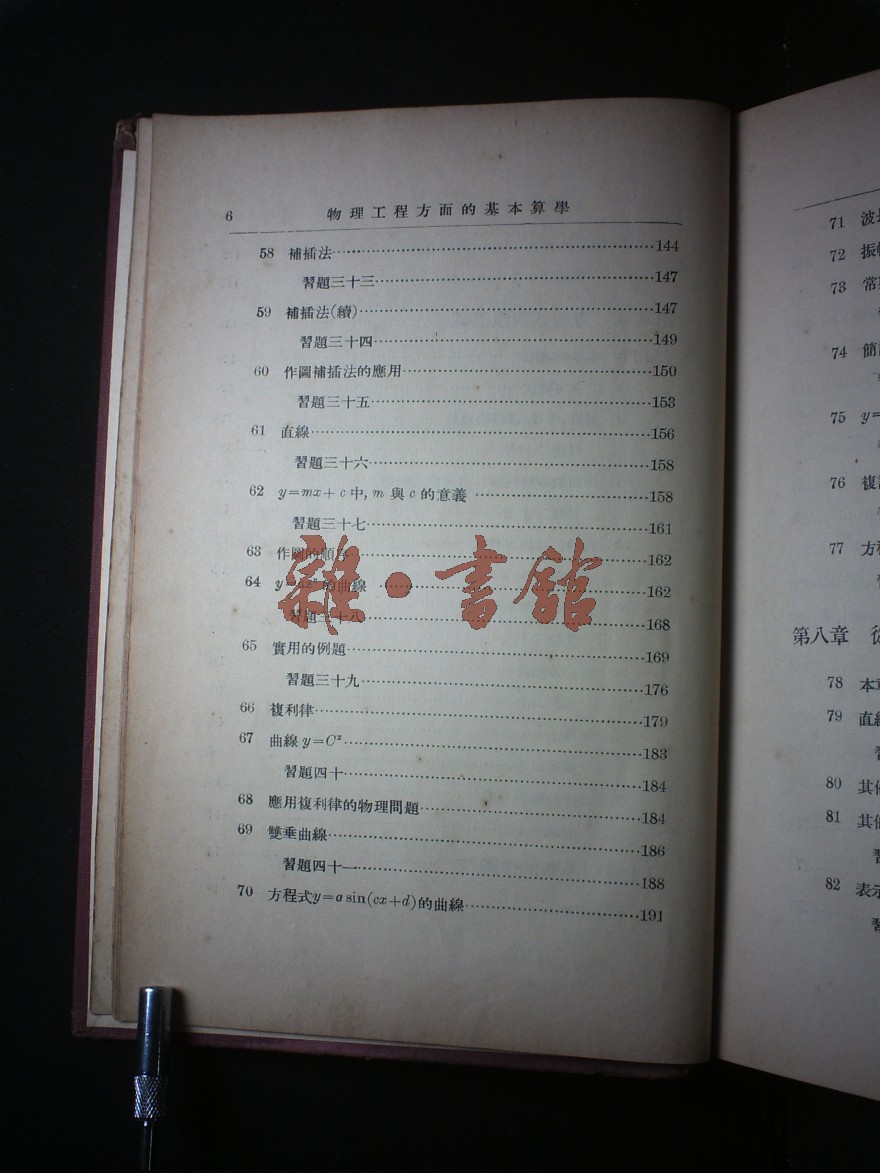 6 物理工程方面的基本算學
58 補插法⋯⋯144
習題三十三⋯⋯147
59 補插法(續)⋯⋯147
習題三十四⋯⋯149
60 作圖補插法的應用⋯⋯150
習題三十五⋯⋯153
61 直線⋯⋯156
習題三十六⋯⋯158
62 y=mx+c中, m 與 c 的意義⋯⋯158
習題三十七⋯⋯161
63 作圖的順序⋯⋯162
64 的曲線⋯⋯162
習題三十八⋯⋯168
65 實用的例題⋯⋯169
習題三十九⋯⋯176
66 複利律⋯⋯179
67 曲線 y=Cˣ⋯⋯183
習題四十⋯⋯184
68 應用複利律的物理問題⋯⋯184
69 雙垂曲線⋯⋯186
習題四十一⋯⋯188
70 方程式y=a sin(cx+d)的曲線⋯⋯191
雜·書館
71 波
72 振
73 常
74 簡
75 y=
76 複
77 方
第八章 從
78 本
79 直線
80 其他
81 其他
82 表示